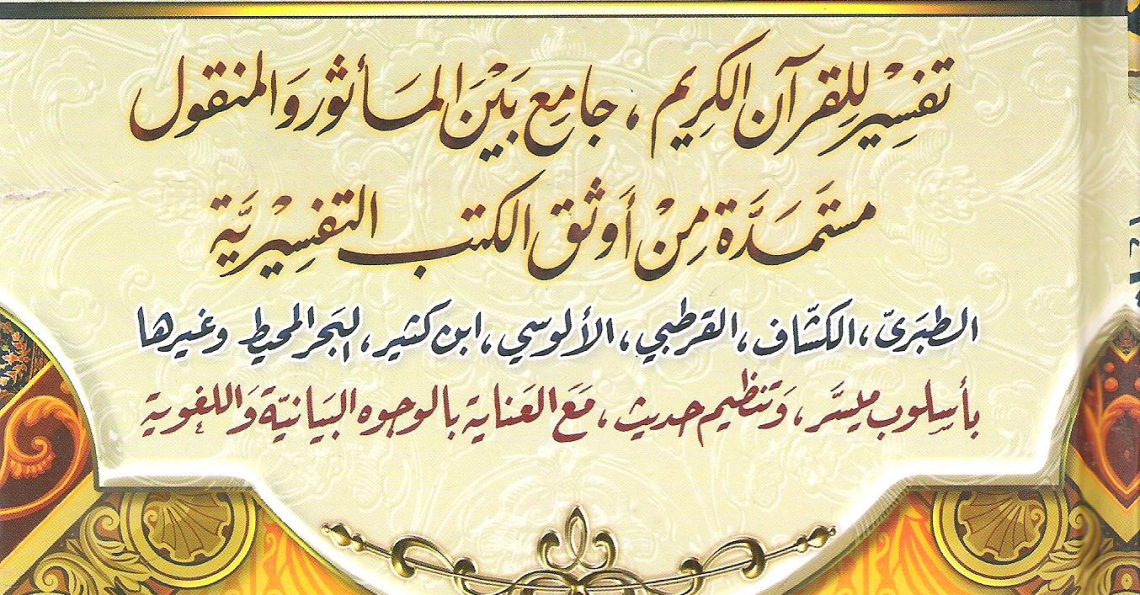 تفسير للقرآن الكريم، جامع بين المأثور والمنقول
مستمدة من أوثق الكتب التفسيرية
الطبري، الكشاف، القرطبي، الألوسي، ابن كثير، البحر المحيط وغيرها
بأسلوب ميسر، وتنظيم حديث، مع العناية بالوجوه البيانية واللغوية